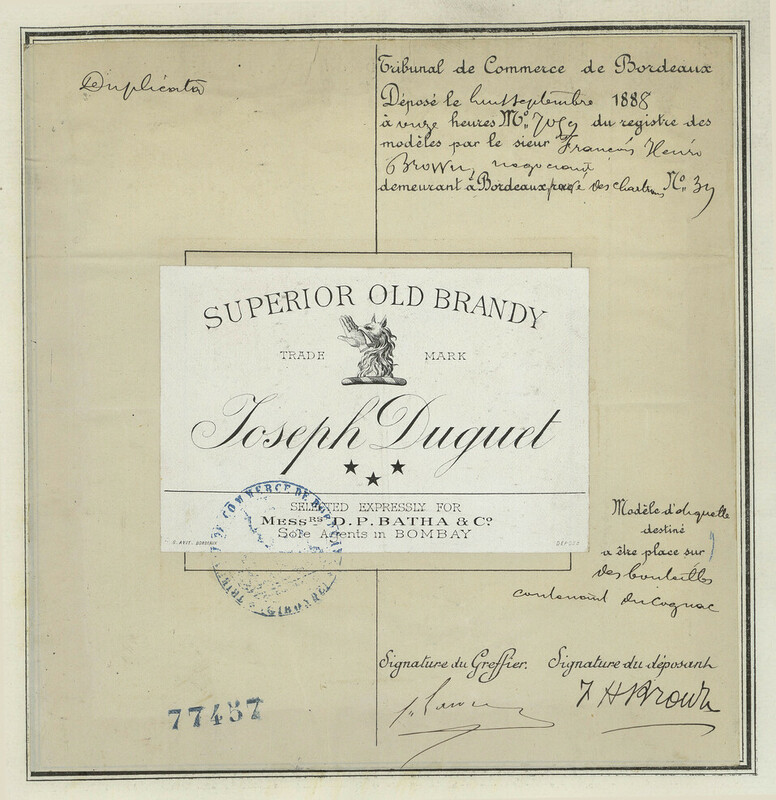 Duplicata
Tribunal de Commerce de Bordeaux
Déposé le huit septembre 1888
à onze heures No. du registre des
modèles par le sieur François Henri
Brown, negociant
demeurant à Bordeaux pavé des chartrons No. 39
SUPERIOR OLD BRANDY
TRADE MARK
Joseph Duguet
SELECTED EXPRESSLY FOR
MESSRS D. P. BATHA & Co
Sole Agents in BOMBAY
BORDEAUX
DÉPOSÉ
TRIBUNAL DE COMMERCE DE BORDEAUX
Modèle d'étiquette
destiné
a être place sur
des bouteilles
contenant du Cognac
Signature du Greffier. Signature du déposant
F H Brown
77457